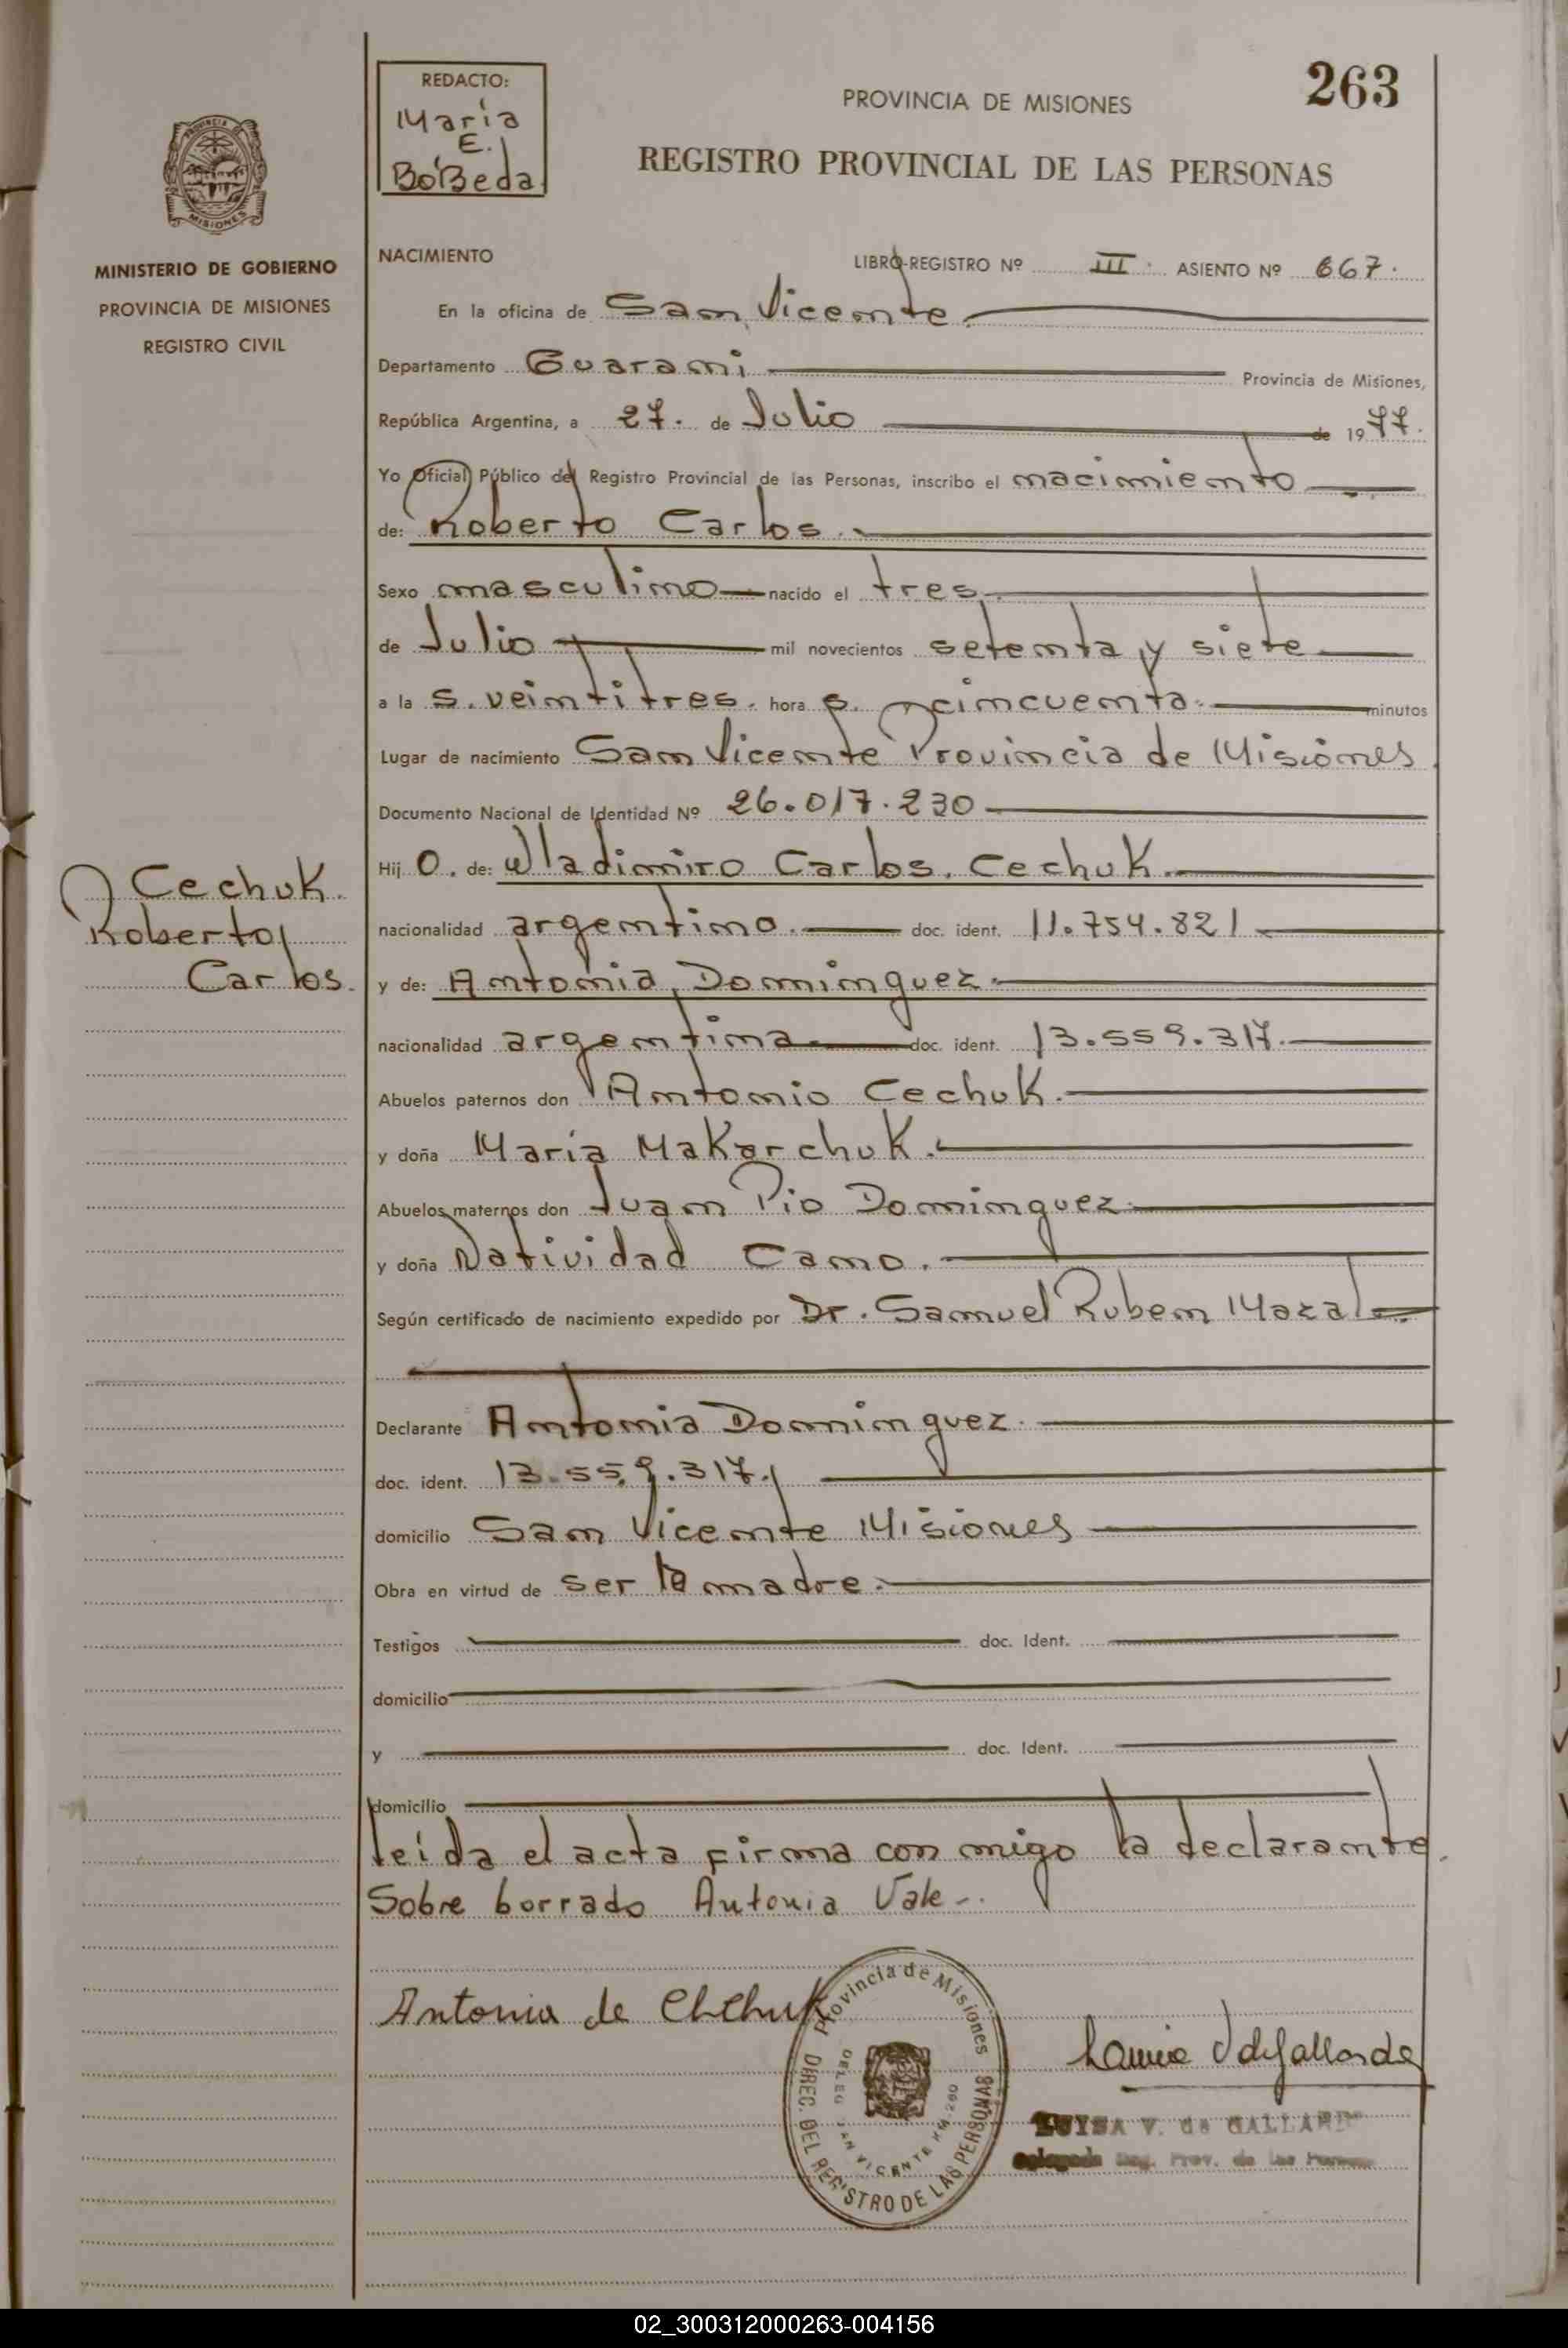 263
REDACTO:
María
E.
BoBeda
PROVINCIA DE MISIONES
REGISTRO PROVINCIAL DE LAS PERSONAS
MISIONES
MINISTERIO DE GOBIERNO
PROVINCIA DE MISIONES
REGISTRO CIVIL
NACIMIENTO LIBRO-REGISTRO Nº III. ASIENTO Nº 667.
En la oficina de San Vicente.
Departamento Guarani Provincia de Misiones,
República Argentina, a 27. de Julio de 1977.
Yo Oficial Público del Registro Provincial de las Personas, inscribo el nacimiento
de: Roberto Carlos.
Sexo masculino nacido el tres
de Julio mil novecientos setenta y siete
a la s. veintitres. hora s. y cincuenta. minutos
Lugar de nacimiento San Vicente Provincia de Misiones
Documento Nacional de Identidad Nº 26.017.230
Hij o. de: Wladimiro Carlos. Cechuk.
Cechuk.
Roberto
Carlos.
nacionalidad argentino. doc. ident. 11.754.821
y de: Antonia Dominguez.
nacionalidad argentina doc. ident. 13.559.317.
Abuelos paternos don Antonio Cechuk.
y doña María Makarchuk.
Abuelos maternos don Juan Pio Dominguez
y doña Natividad Cano.
Según certificado de nacimiento expedido por Dr. Samuel Ruben Mazal
Declarante Antonia Dominguez.
doc. ident. 13.559.317.
domicilio San Vicente Misiones
Obra en virtud de ser la madre.
Testigos doc. Ident.
domicilio
y doc. Ident.
domicilio
leída el acta firma con migo la declarante.
Sobre borrado Antonia Vale-.
Antonia de Chchuk
Provincia de Misiones
DIREC. DEL REGISTRO DE LAS PERSONAS
SAN VICENTE KM. 260
LUISA V. de GALLARDO
Reg. Prov. de las
02_300312000263-004156